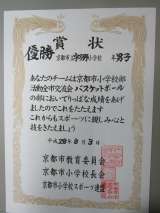 賞状
優勝
京都市立 小学校 年男子
あなたのチームは京都市小学校部
活動全市交流会バスケットボール
の部においてりっぱな成績をあげ
ましたのでこれをたたえます
これからもスポーツに親しみ心と
技をきたえましょう
平成28年8月3日
京都市教育委員会
京都市小学校長会
京都市小学校スポーツ連盟